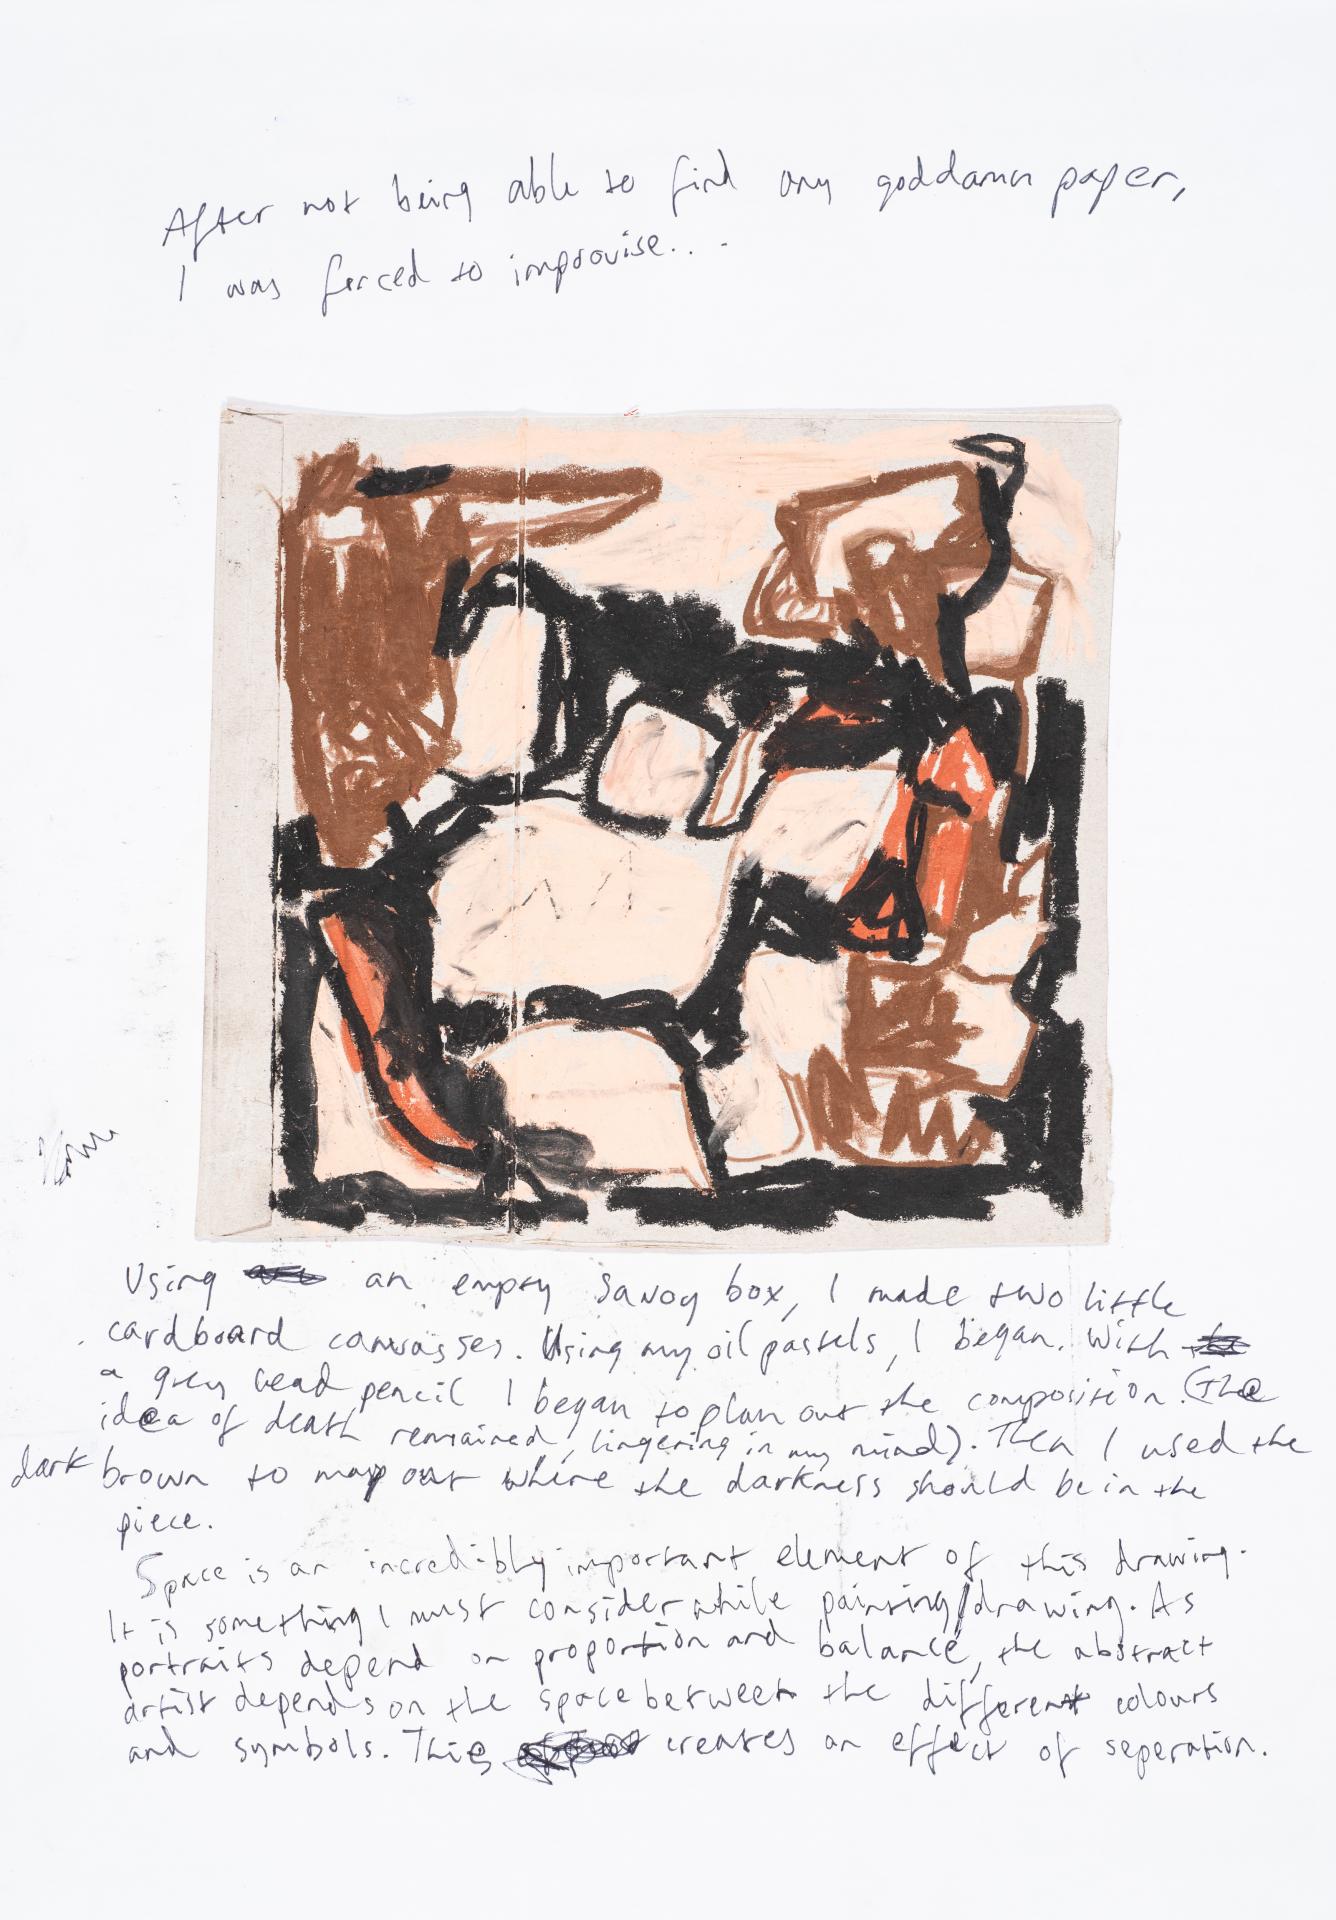 After not being able to find any goddamn paper,
I was forced to improvise...
Using an empty Savoy box, I made two little
cardboard canvasses. Using my oil pastels, I began. With
a grey lead pencil I began to plan out the composition. (The
idea of death remained, lingering in my mind). Then I used the
dark brown to map out where the darkness should be in the
piece.
Space is an incredibly important element of this drawing.
It is something I must consider while painting/drawing. As
portraits depend on proportion and balance, the abstract
artist depends on the space between the different colours
and symbols. This creates an effect of seperation.